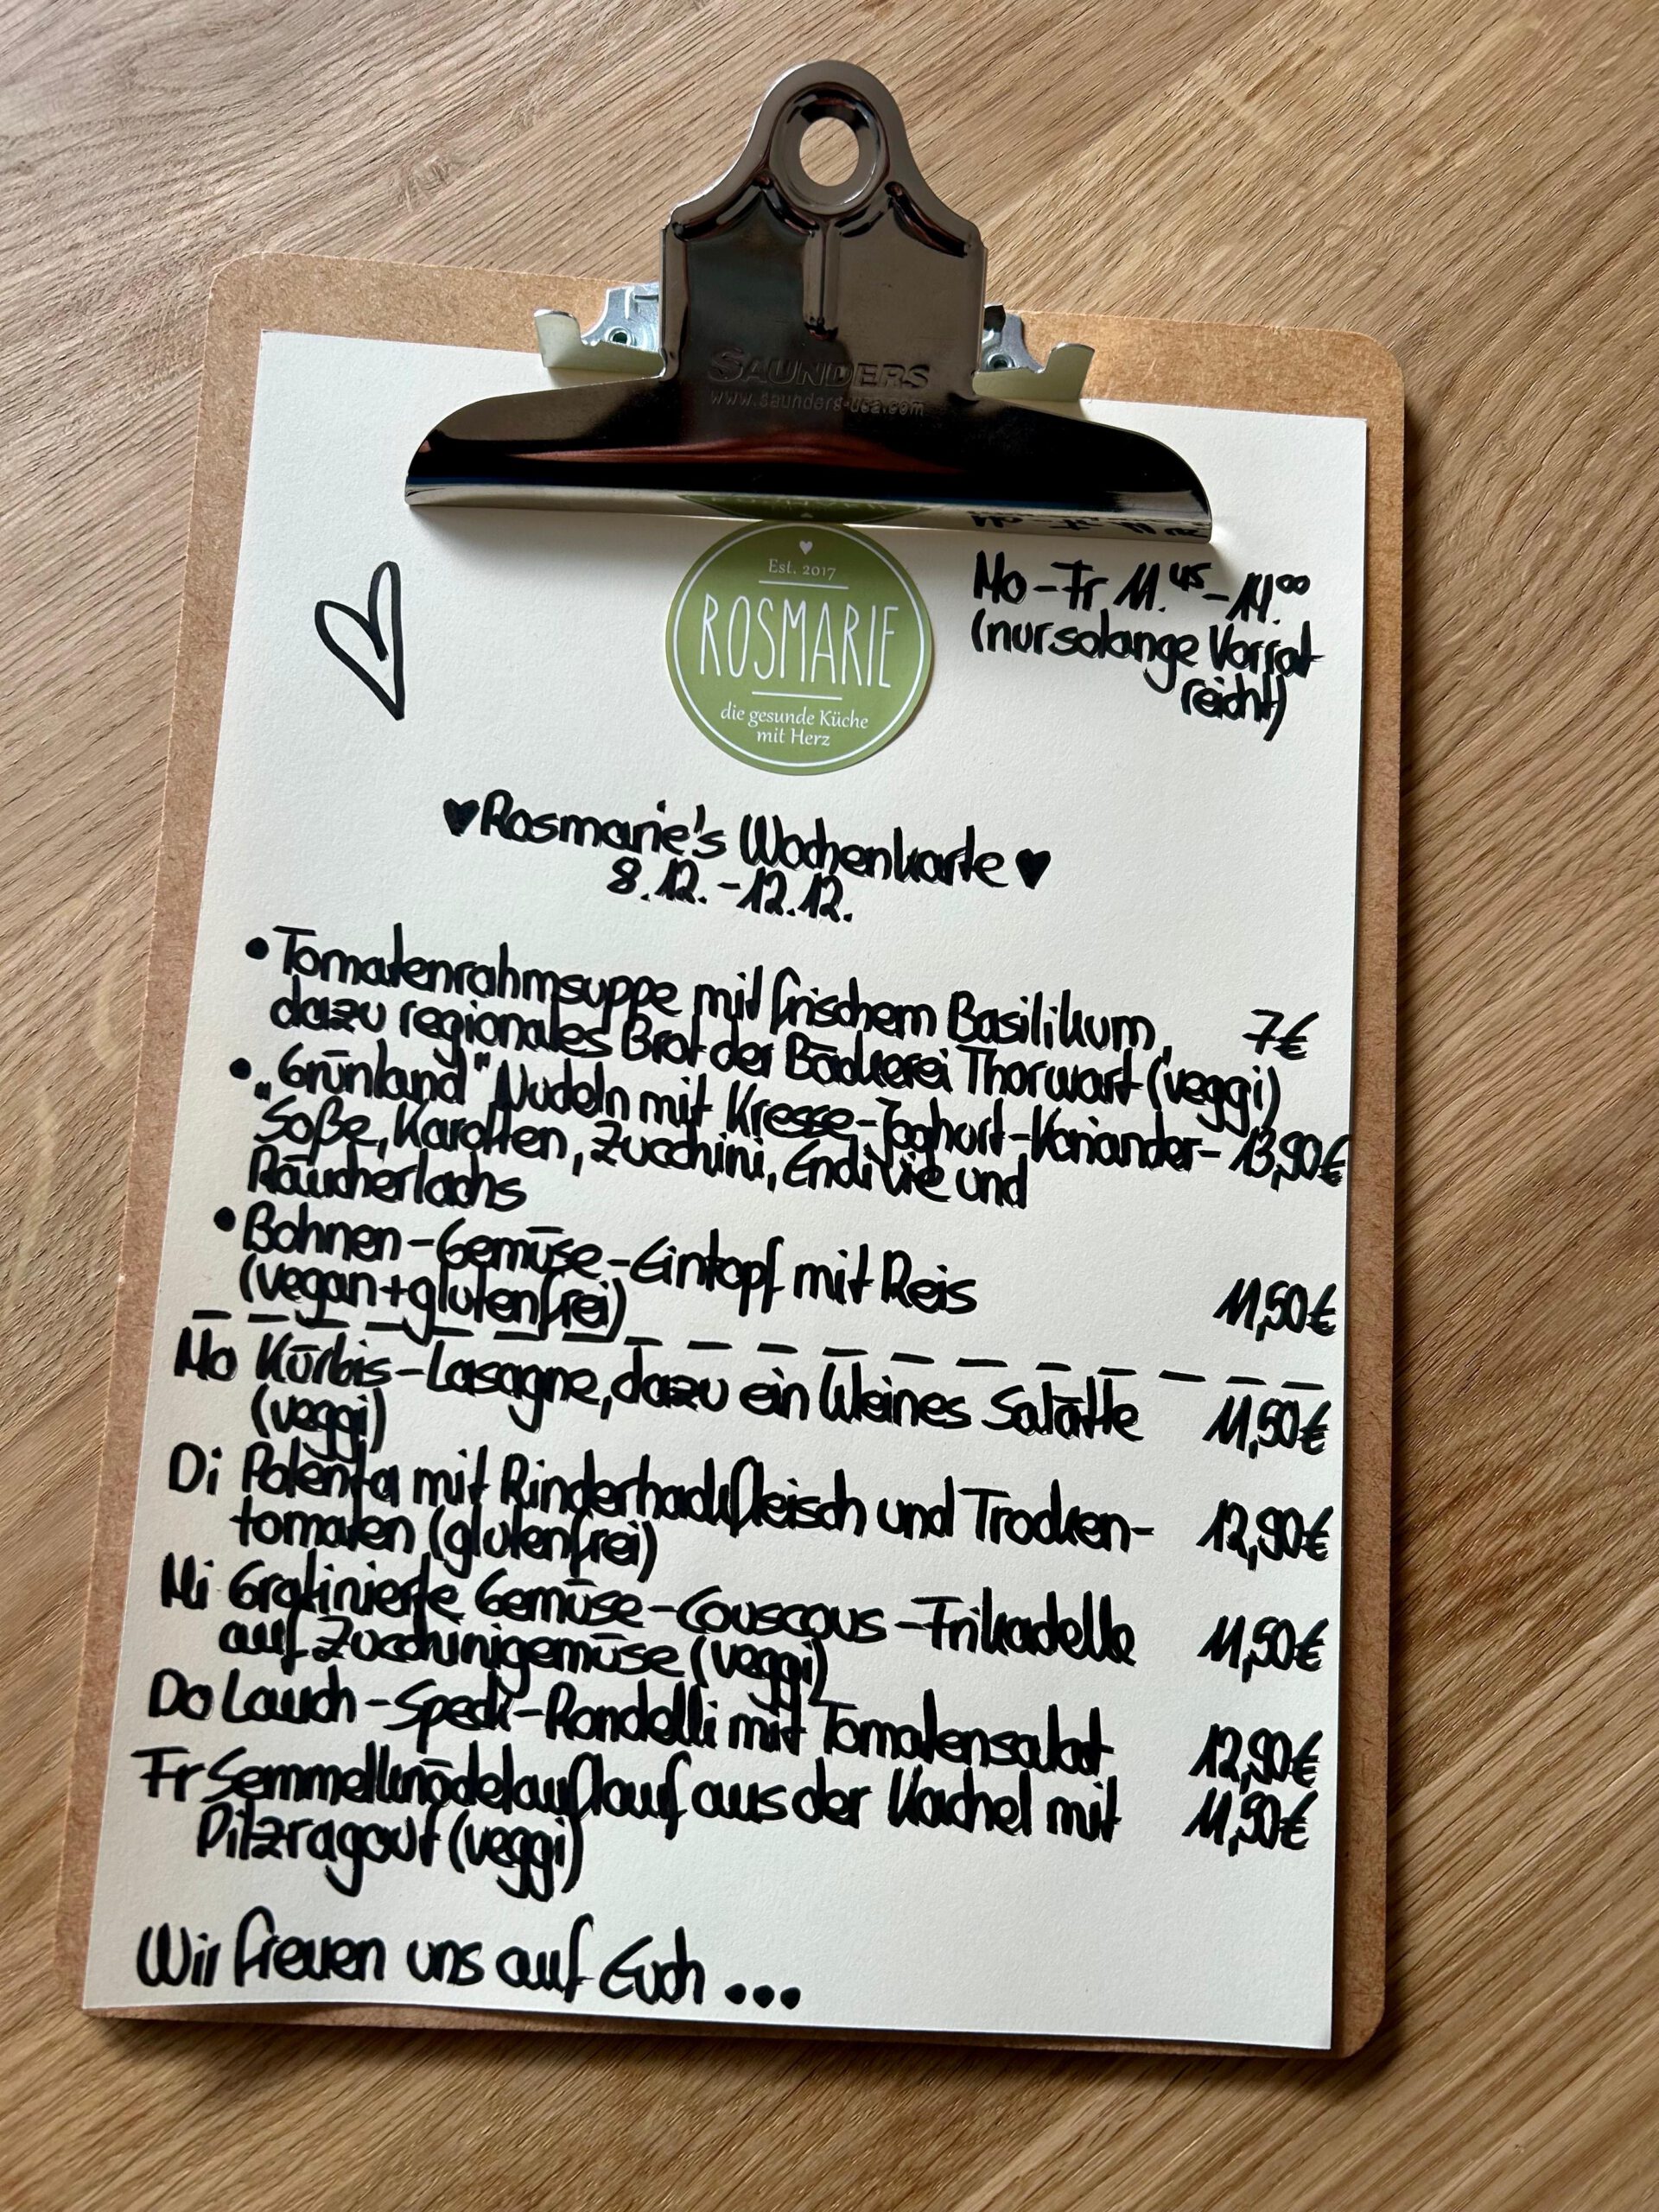 SAUNDERS
www.saunders-usa.com
Est. 2017
ROSMARIE
die gesunde Küche
mit Herz
Mo-Fr 11.45-14.00
(nur solange Vorrat
reicht)
♥Rosmarie's Wochenkarte♥
8.12.-12.12.
•Tomatenrahmsuppe mit frischem Basilikum, 7€
dazu regionales Brot der Bäckerei Thorwart (veggi)
•„Grünland" Nudeln mit Kresse-Joghurt-Koriander- 13,90€
Soße, Karotten, Zucchini, Endivie und
Räucherlachs
•Bohnen-Gemüse-Eintopf mit Reis 11,50€
(vegan+glutenfrei)
Mo Kürbis-Lasagne, dazu ein kleines Salätle 11,50€
(veggi)
Di Polenta mit Rinderhackfleisch und Trocken- 12,90€
tomaten (glutenfrei)
Mi Gratinierte Gemüse-Couscous-Frikadelle 11,50€
auf Zucchinigemüse (veggi)
Do Lauch-Speck-Rondelli mit Tomatensalat 12,90€
Fr Semmelknödelauflauf aus der Kachel mit 11,90€
Pilzragout (veggi)
Wir freuen uns auf Euch...